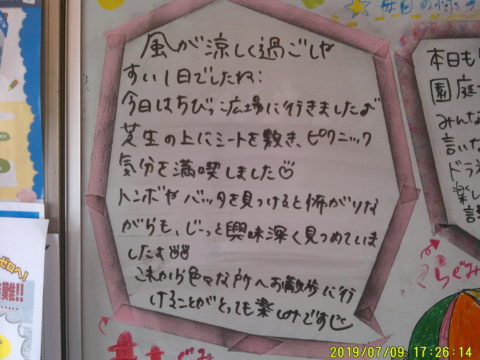 毎日の様子
風が涼しく過ごしや
すい1日でしたね!
今日はちびっこ広場に行きましたよ
芝生の上にシートを敷き、ピクニック
気分を満喫しました♡
トンボやバッタを見つけると怖がりな
がらも、じーっと興味深く見つめていま
したよ
これから色々な所へお散歩に行
けることがとっても楽しみです
本日も
園庭
みんな
言いな
ドラえ
楽し
ぐみ
2019/07/09 17:26:14